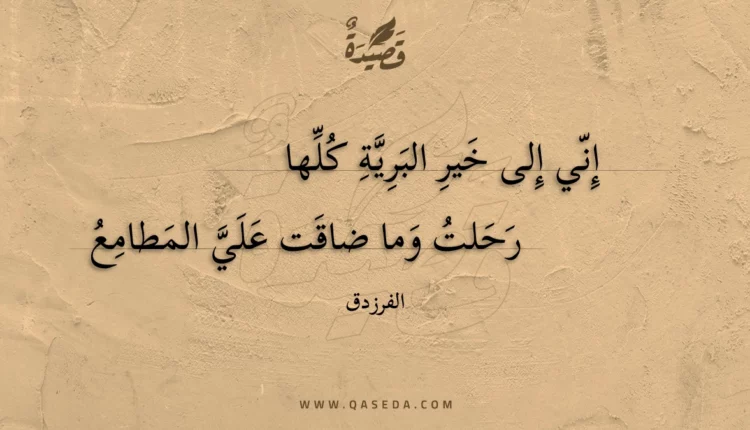 قَصِيدَةٌ
إِنّي إِلى خَيرِ البَرِيَّةِ كُلِّها
رَحَلتُ وَما ضاقَت عَلَيَّ المَطامِعُ
الفرزدق
WWW.QASEDA.COM